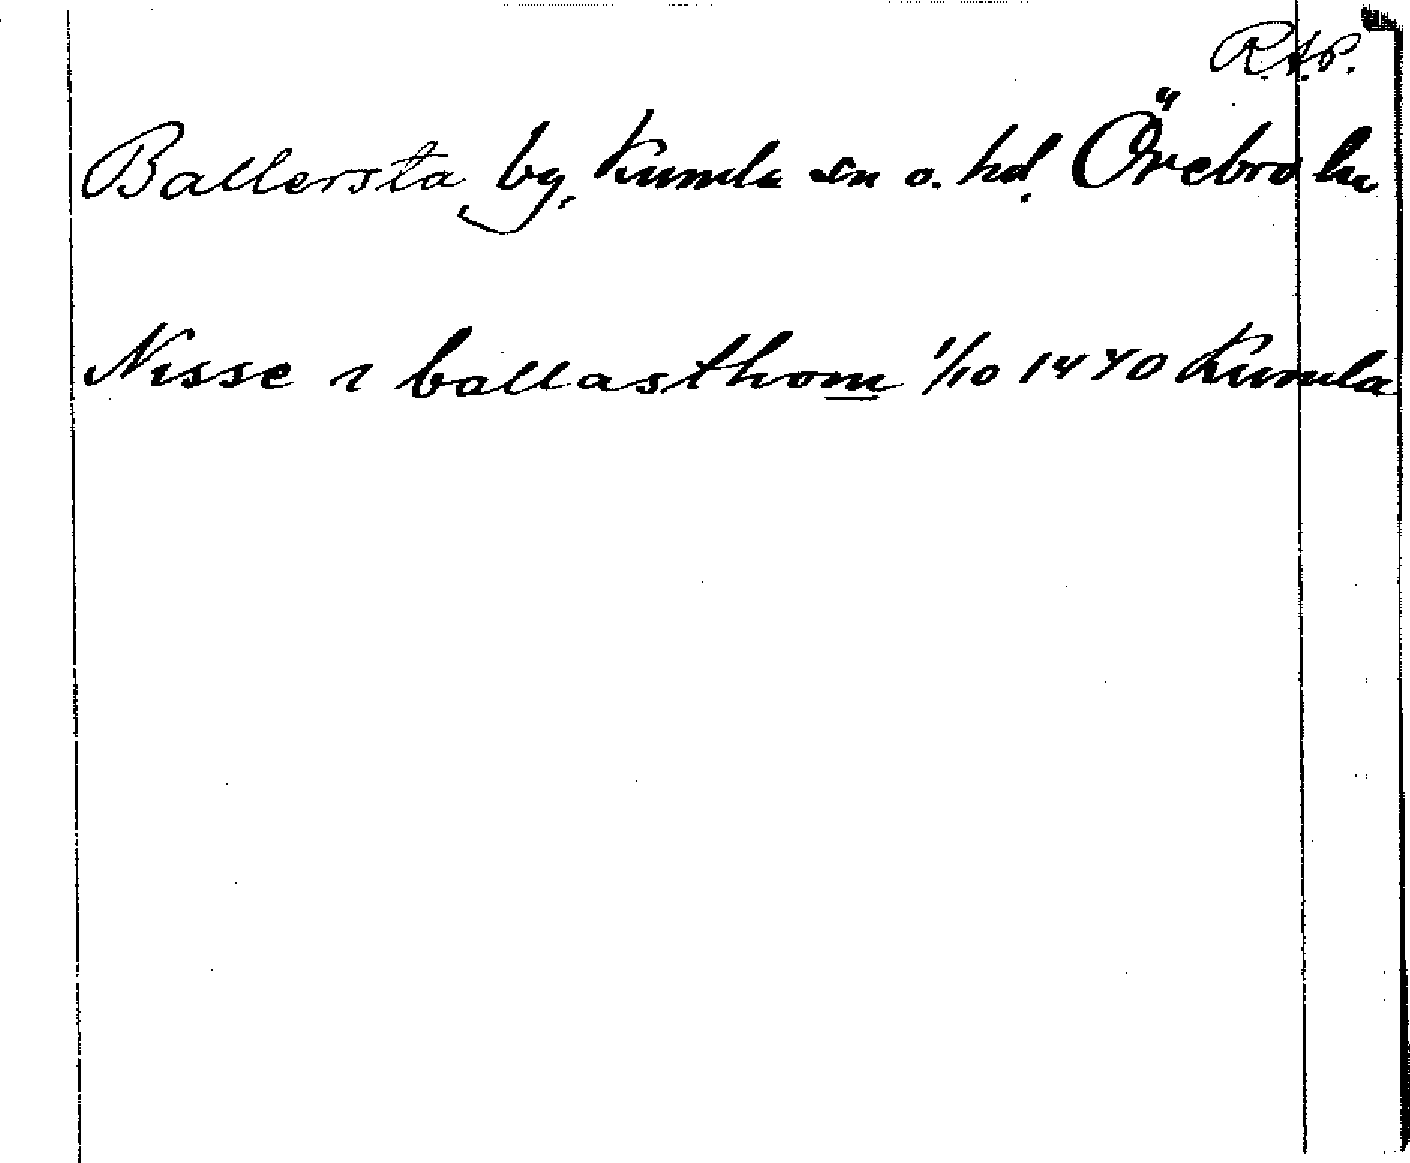 R.A.P.
Ballersta by, Kumla sn o. hd. Örebro län
Nisse i ballasthom 1/10 1440 Kumla